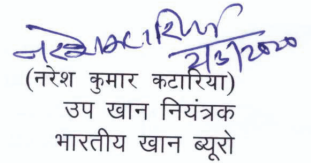 नरेश कटारिया
2/3/2020
(नरेश कुमार कटारिया)
उप खान नियंत्रक
भारतीय खान ब्यूरो